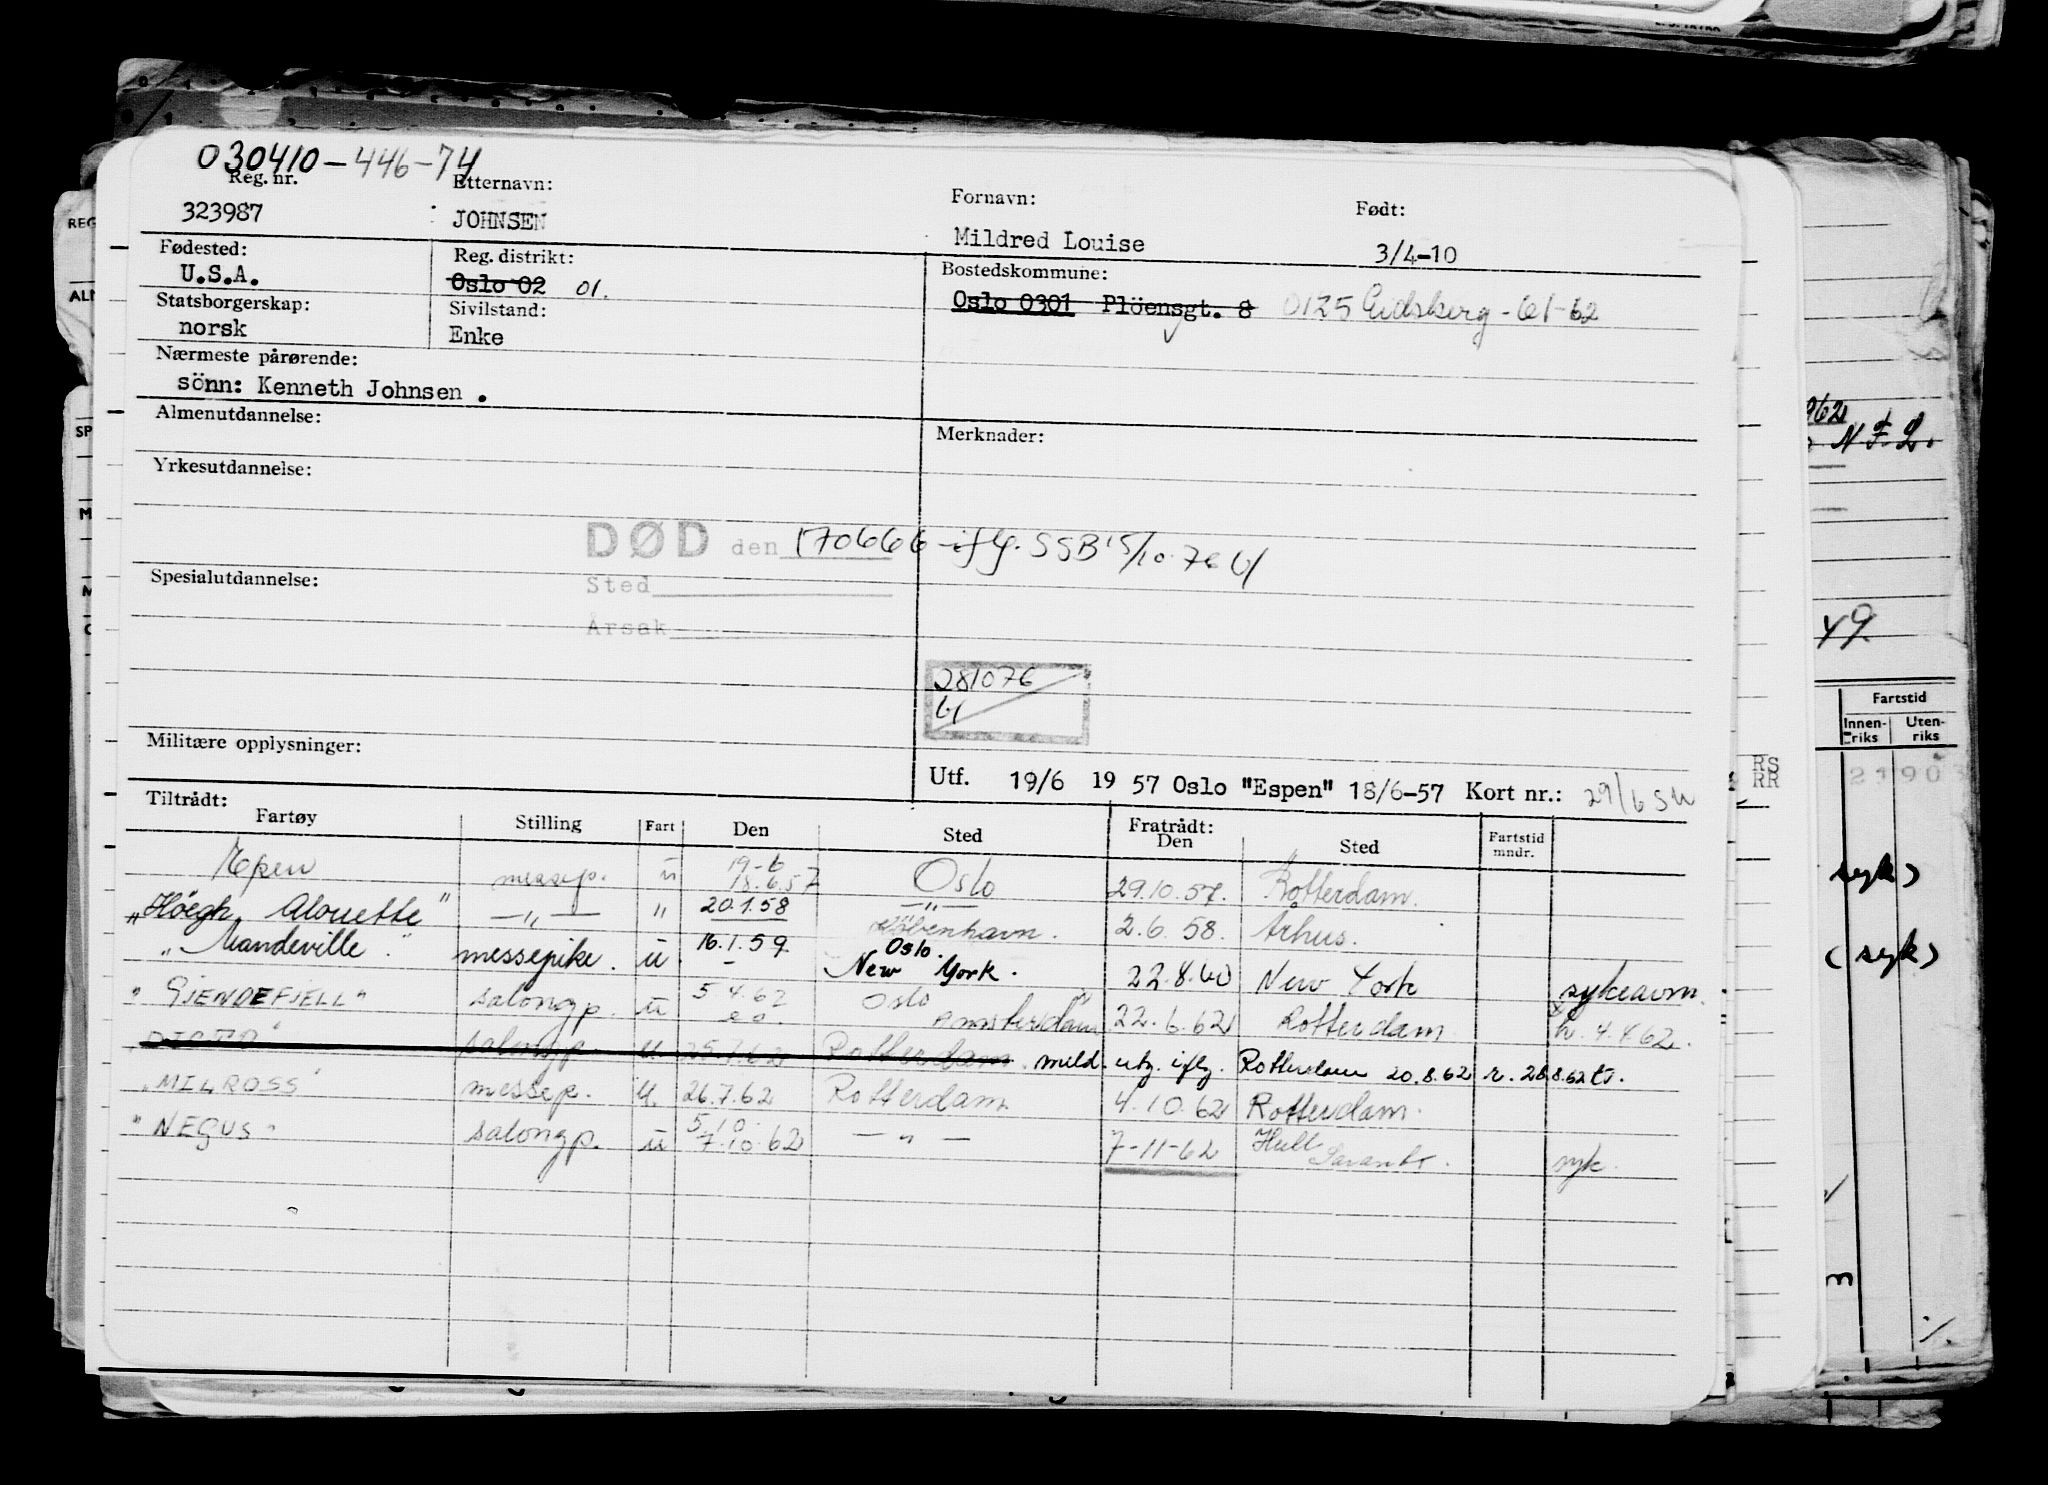 030410-446-74
Reg. nr. Etternavn: Fornavn: Født:
323987 JOHNSEN Mildred Louise 3/4-10
Fødested: Reg. distrikt: Bostedskommune:
U.S.A. Oslo 02 01. Oslo 0301 Plöensgt. 8 0125 Eidsberg - 61-62
Statsborgerskap: Sivilstand:
norsk Enke
Nærmeste pårørende:
sönn: Kenneth Johnsen .
Almenutdannelse: Merknader:
Yrkesutdannelse:
DØD den 170666 iflg. SSB 15/10.76
Spesialutdannelse: Sted
Årsak
281076
Militære opplysninger:
Utf. 19/6 19 57 Oslo "Espen" 18/6-57 Kort nr.: 29/6
Tiltrådt: Fratrådt:
Fartøy Stilling Fart Den Sted Den Sted Fartstid mndr.
19-6
messep. ü 18.6.57 Oslo 29.10.57. Rotterdam.
„Höegh Alouette" — „ — " 20.1.58 — „ — København. 2.6.58. Århus.
„Mandeville" messepike. ü. 16.1.59. Oslo. New York. 22.8.60 New York sykeavm.
"GJENDEFJELL" salongp. ü 5.4.62 Oslo Amsterdam 22.6.62 Rotterdam h. 4.4.62.
salongp. ü. Rotterdam. meld. utg. iflg. Rotterdam 20.8.62
"MILROSS" messep. ü. 26.7.62 Rotterdam 4.10.62 Rotterdam.
5.10.
"NEGUS" salongp. ü 7.10.62 — „ — 7-11-62 Hull syk.
962
N.F.L.
49.
Fartstid
Innenriks Utenriks
RS
RR
syk)
(syk)